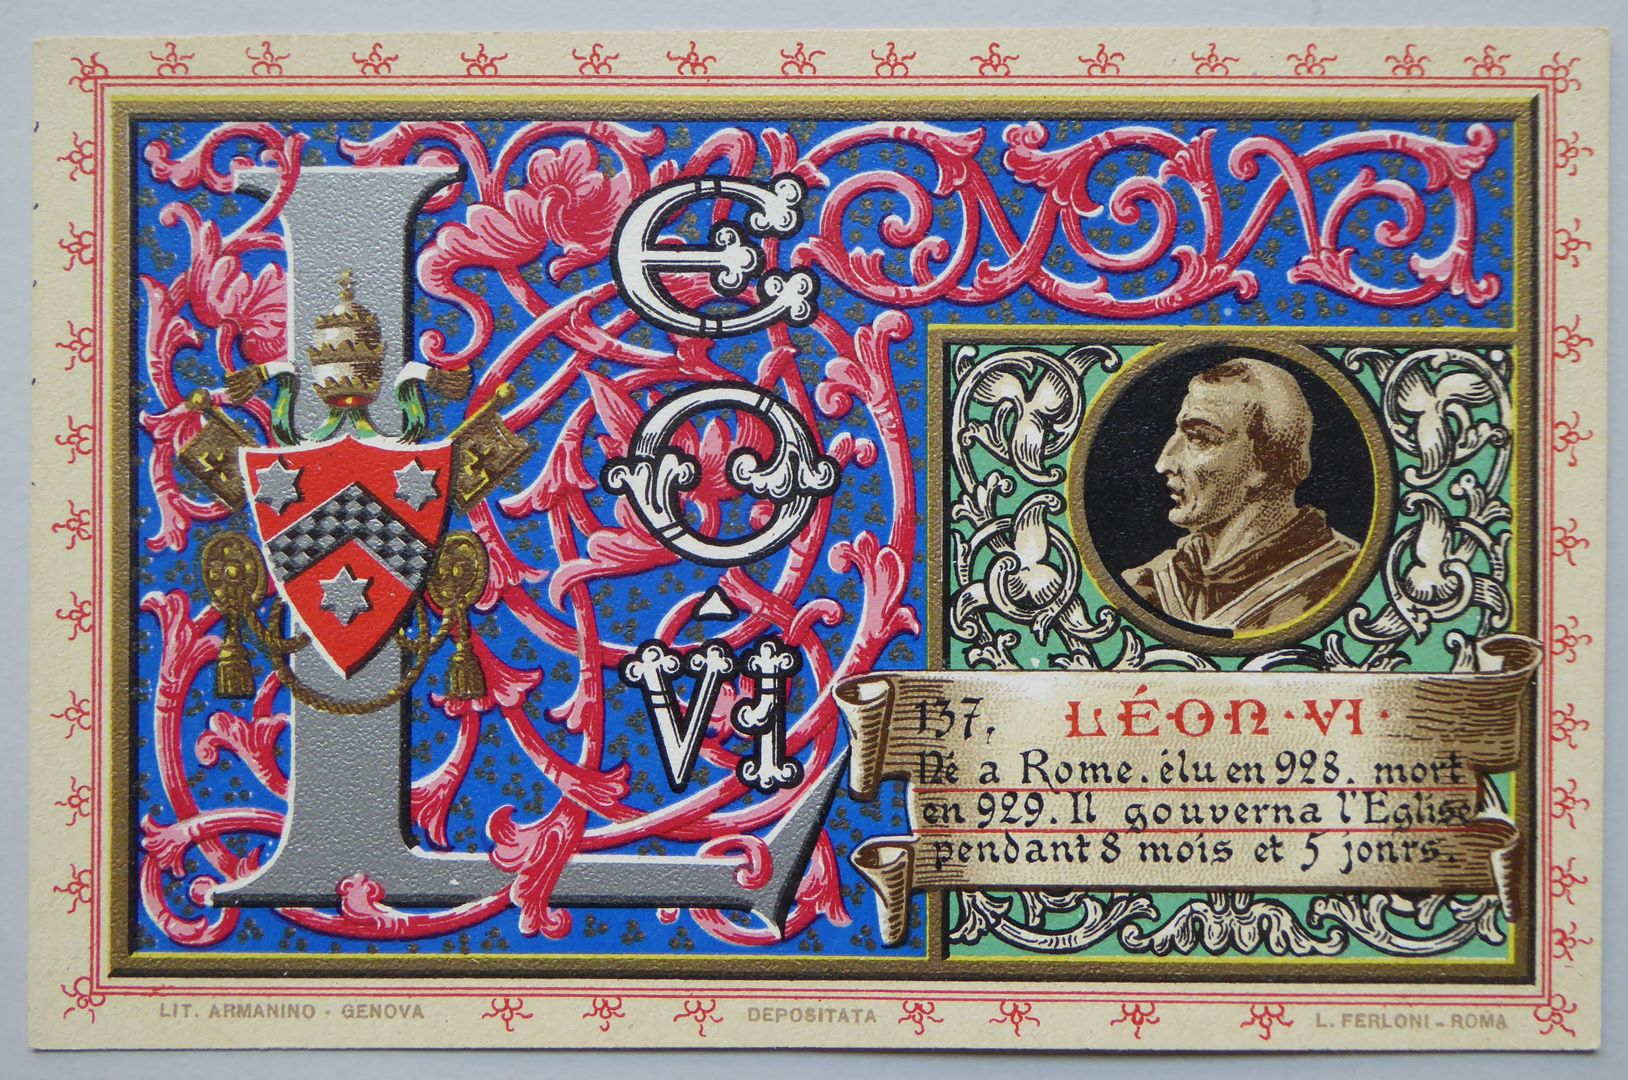 LEO
VI
137. LÉON·VI·
Né a Rome. élu en 928. mort
en 929. Il gouverna l'Eglise
pendant 8 mois et 5 jours.
LIT. ARMANINO - GENOVA
DEPOSITATA
L. FERLONI - ROMA